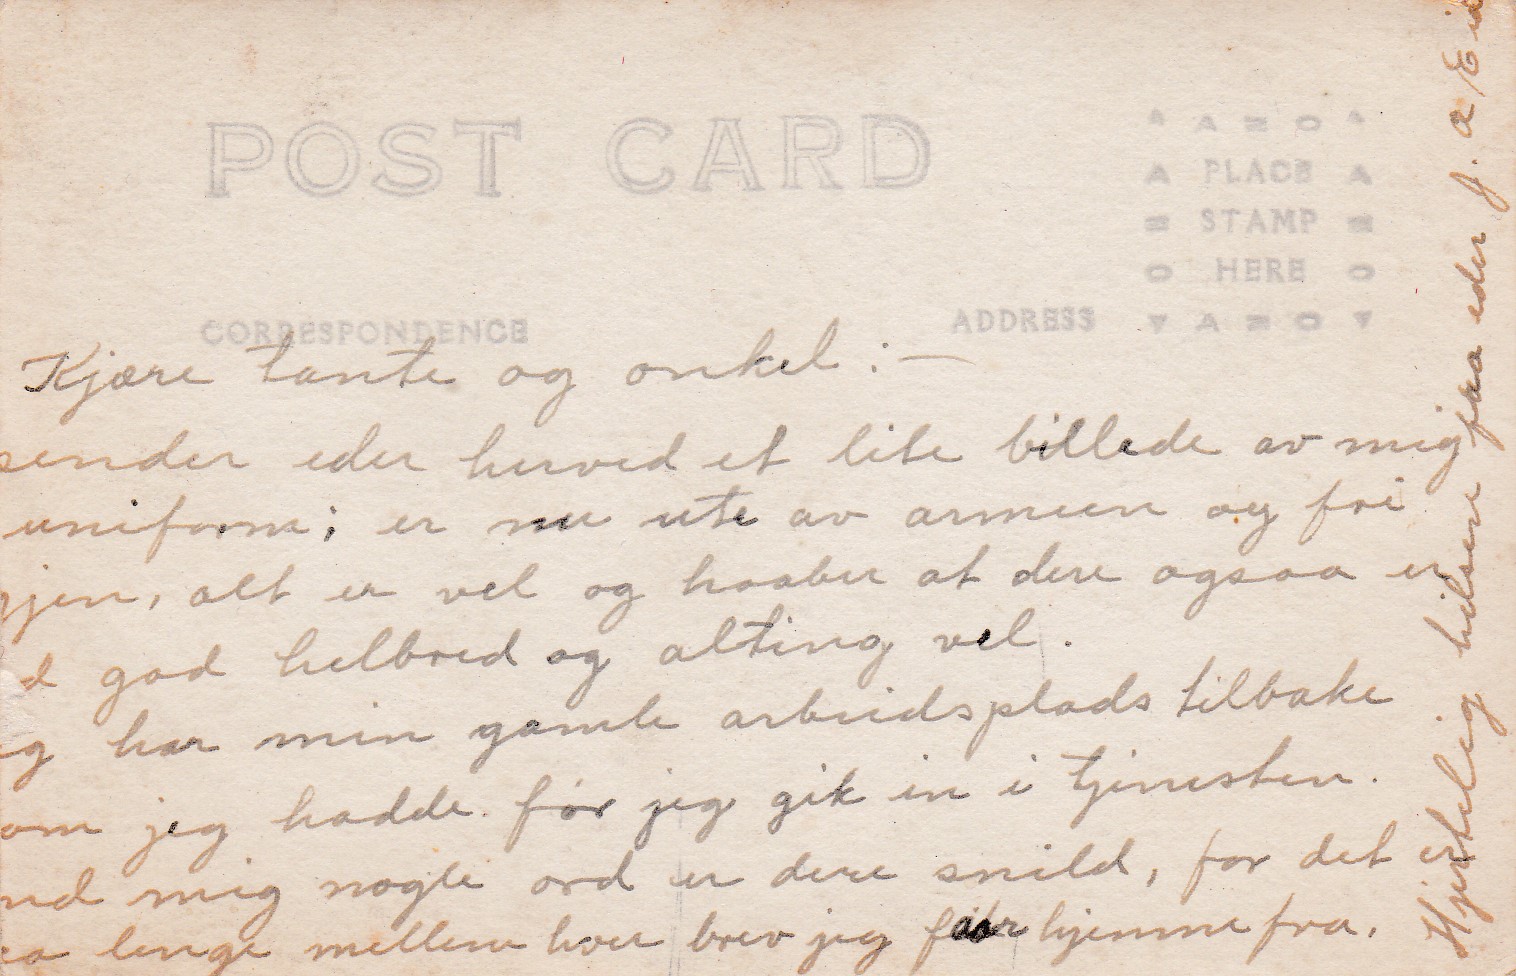 POST CARD
AZO
PLACE
STAMP
HERE
AZO
CORRESPONDENCE
ADDRESS
Kjære tante og onkel :—
sender eder herved et lite billede av mig
uniform; er nu ute av armeen og fri
gjen, alt er vel og haaber at dere ogsaa er
d god helbred og alting vel.
g har min gamle arbeidsplads tilbake
om jeg hadde før jeg gik in i tjenesten.
nd mig nogle ord er dere snild, for det er
aa lenge mellem hver brev jeg faar hjemme fra.
Hjertelig hilsen fra eder J. A. Eid